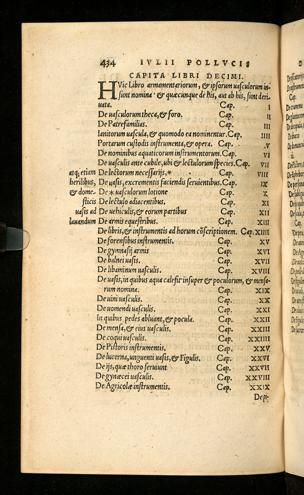 434 IVLII POLLVCIS
CAPITA LIBRI DECIMI.
HVic Libro armamentariorum, & ipsorum uasculorum in
sunt nomina & quæcunque de his, aut ab his, sunt deri
uata. Cap. I
De uasculorum theca, & foro. Cap. II
De Patrefamilias. Cap. III
Ianitorum uascula, & quomodo ea nominentur. Cap. IIII
Portarum custodis instrumenta, & opera. Cap. V
De nominibus aquaticorum instrumentorum. Cap. VI
De uasculis ante cubile, ubi & lectulorum species. Cap. VII
æq; etiam De lectorum necessarijs. Cap. VIII
herilibus, De uasis, excrementa faciendis seruientibus. Cap. IX
& dome- De uasculorum lotione Cap. X
sticis De lectulo adiacentibus. Cap. XI
uasis ad De uehiculis, & eorum partibus Cap. XII
lauandum De armis equestribus. Cap. XIII
De libris, & instrumentis ad horum cōscriptionem. Cap. XIIII
De forensibus instrumentis. Cap. XV
De gymnasij armis Cap. XVI
De balnei uasis. Cap. XVII
De libaminum uasculis. Cap. XVIII
De uasis, in quibus aqua calefit insuper & poculorum, & mensa-
rum nomina. Cap. XIX
De uini uasculis. Cap. XX
De uomendi uasculis. Cap. XXI
In quibus pedes abluunt, & pocula. Cap. XXII
De mensa, & eius uasculis. Cap. XXIII
De coqui uasculis. Cap. XXIIII
De Pistoris instrumentis. Cap. XXV
De lucerna, unguenti uasis, & Figulis. Cap. XXVI
De ijs, quæ thoro seruiunt Cap. XXVII
De gynæcei uasculis. Cap. XXVIII
De Agricolæ instrumentis. Cap. XXIX
De pi-